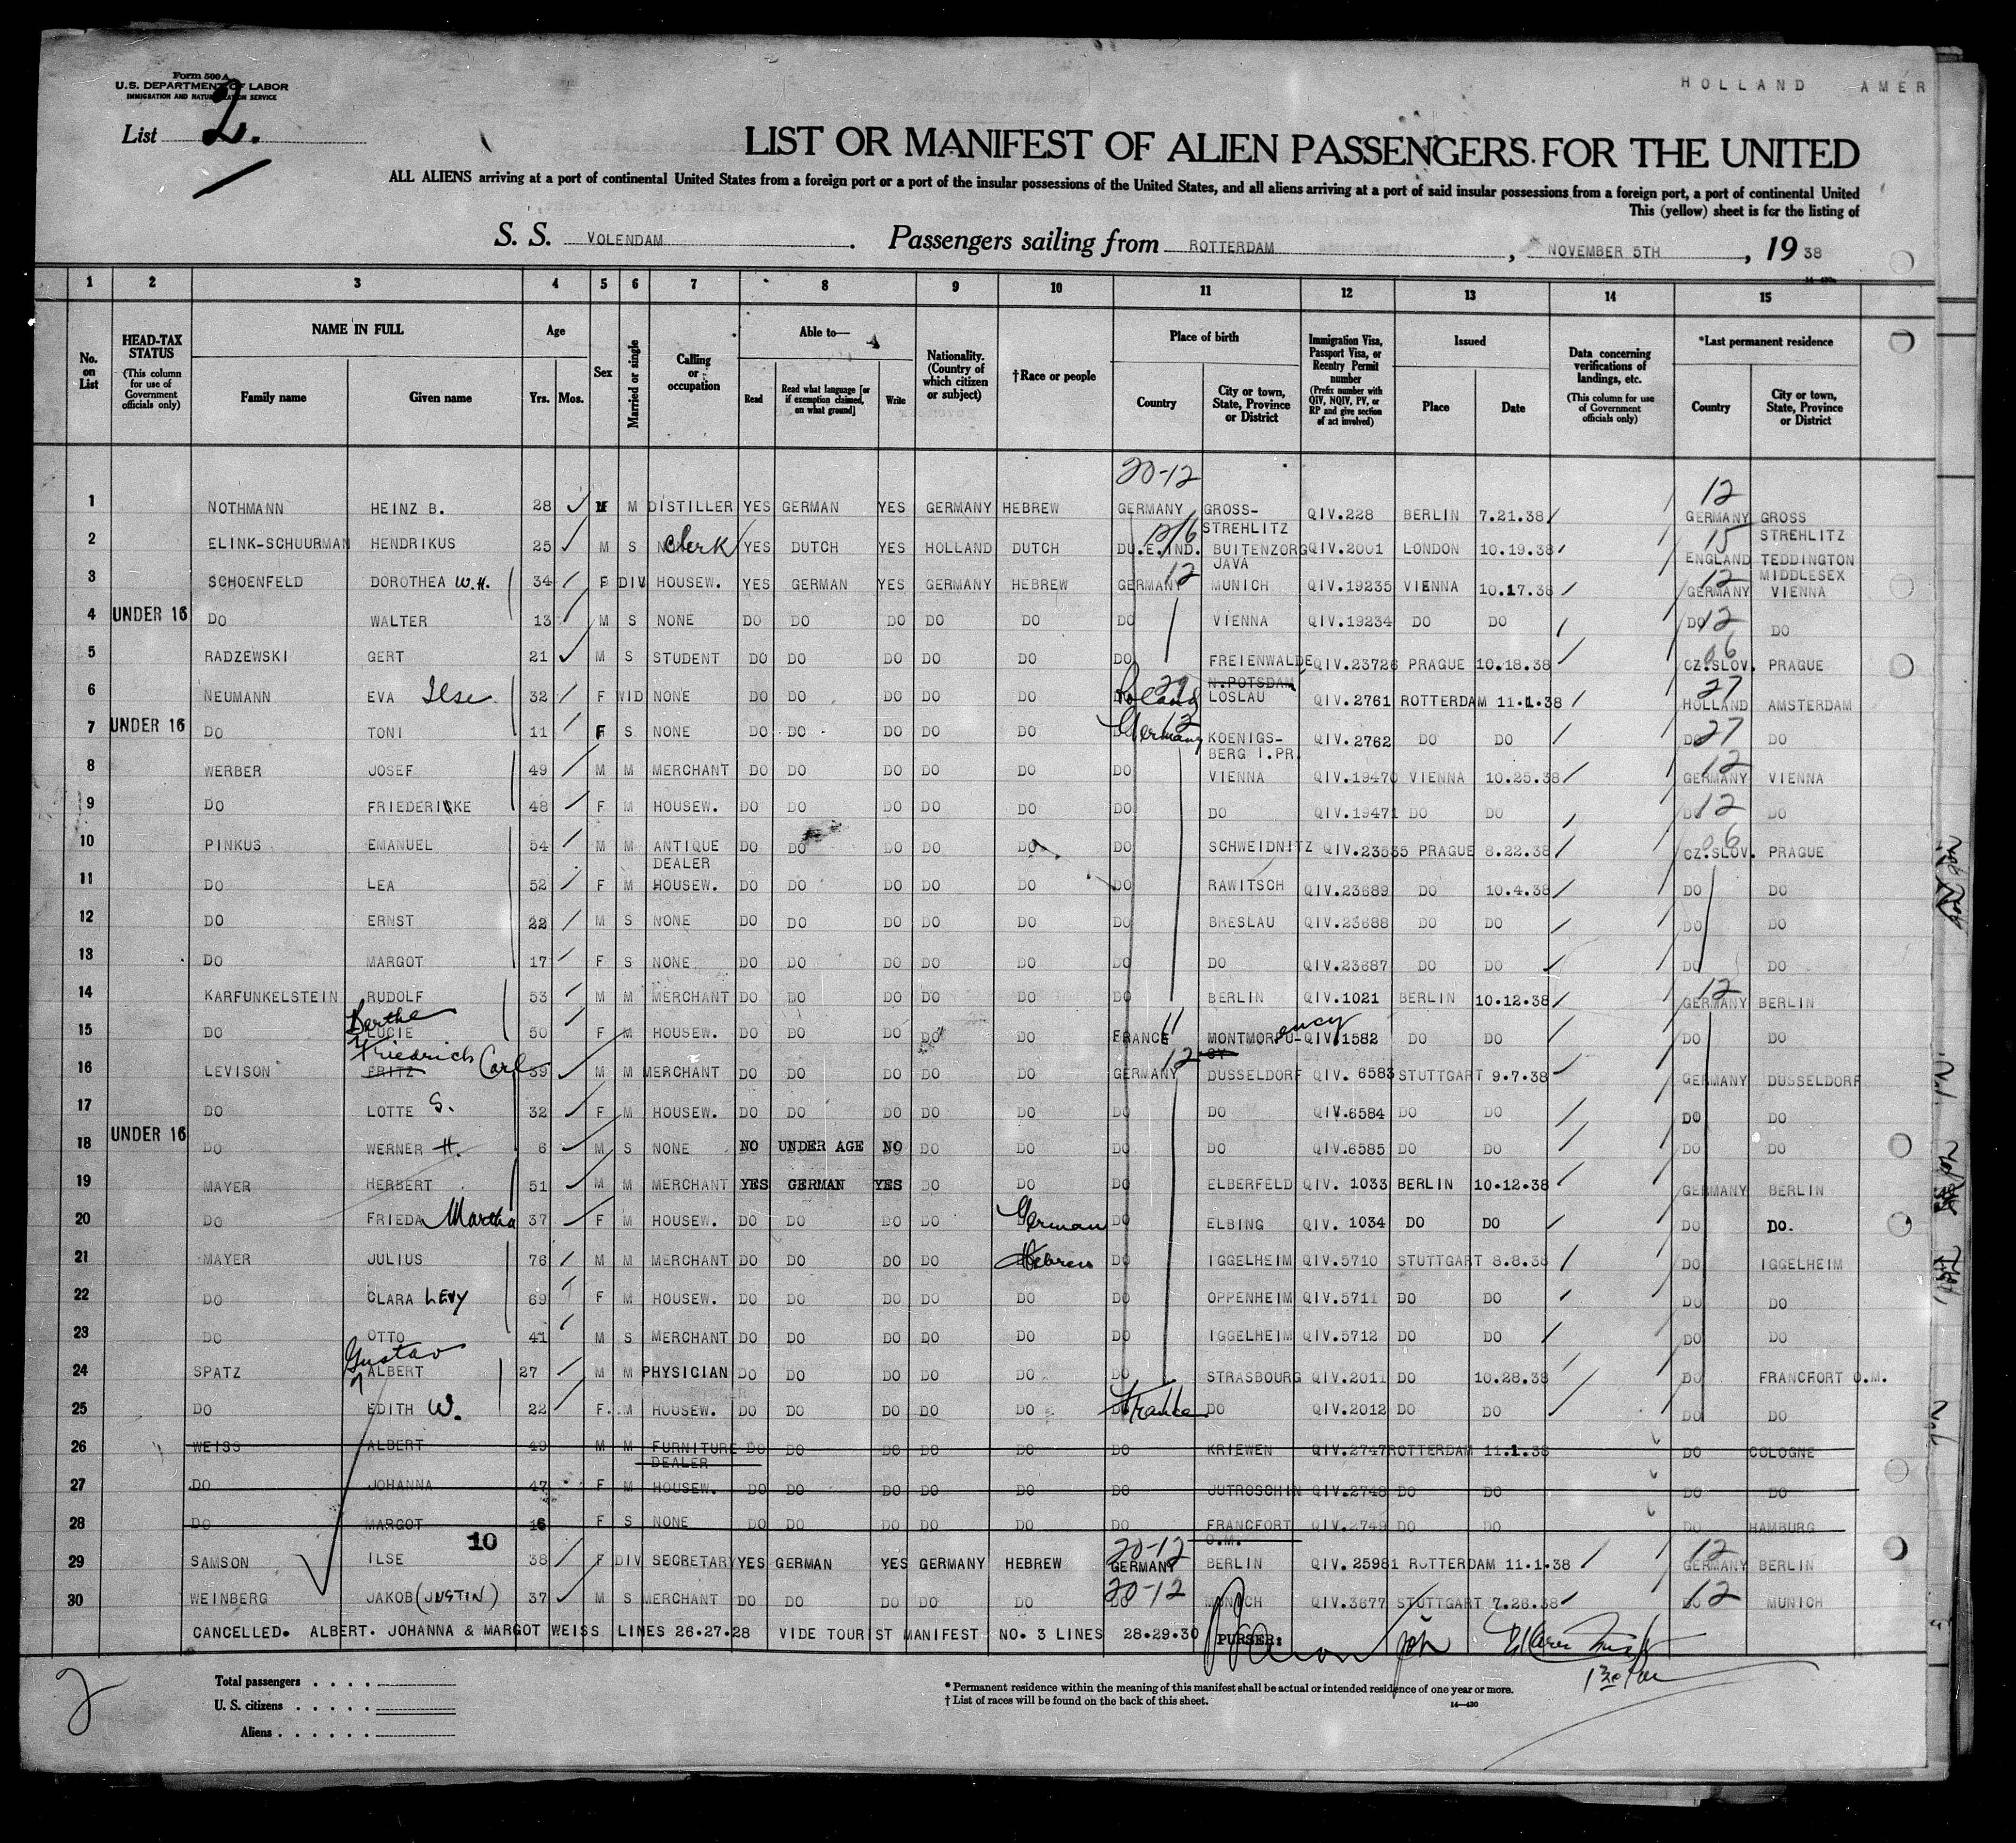 Form 500 A
U.S. DEPARTMENT OF LABOR
IMMIGRATION AND NATURALIZATION SERVICE
HOLLAND AMER
List 2.
LIST OR MANIFEST OF ALIEN PASSENGERS FOR THE UNITED
ALL ALIENS arriving at a port of continental United States from a foreign port or a port of the insular possessions of the United States, and all aliens arriving at a port of said insular possessions from a foreign port, a port of continental United
This (yellow) sheet is for the listing of
S. S. VOLENDAM. Passengers sailing from ROTTERDAM, NOVEMBER 5TH, 1938
1 2 3 4 5 6 7 8 9 10 11 12 13 14 15
No. on List
HEAD-TAX STATUS (This column for use of Government officials only)
NAME IN FULL Family name Given name
Age Yrs. Mos.
Sex
Married or single
Calling or occupation
Able to— Read Read what language [or if exemption claimed, on what ground] Write
Nationality. (Country of which citizen or subject)
†Race or people
Place of birth Country City or town, State, Province or District
Immigration Visa, Passport Visa, or Reentry Permit number (Prefix number with QIV, NQIV, PV, or RP and give section of act involved)
Issued Place Date
Data concerning verifications of landings, etc. (This column for use of Government officials only)
*Last permanent residence Country City or town, State, Province or District
20-12 12
1 NOTHMANN HEINZ B. 28 M M DISTILLER YES GERMAN YES GERMANY HEBREW GERMANY GROSS-STREHLITZ QIV.228 BERLIN 7.21.38 GERMANY GROSS STREHLITZ
2 ELINK-SCHUURMAN HENDRIKUS 25 M S Clerk YES DUTCH YES HOLLAND DUTCH DU.E.IND. BUITENZORG JAVA QIV.2001 LONDON 10.19.38 15 ENGLAND TEDDINGTON MIDDLESEX
3 SCHOENFELD DOROTHEA W.H. 34 F DIV HOUSEW. YES GERMAN YES GERMANY HEBREW GERMANY 12 MUNICH QIV.19235 VIENNA 10.17.38 12 GERMANY VIENNA
4 UNDER 16 DO WALTER 13 M S NONE DO DO DO DO DO DO VIENNA QIV.19234 DO DO DO 12 DO
5 RADZEWSKI GERT 21 M S STUDENT DO DO DO DO DO DO FREIENWALDE N.POTSDAM QIV.23726 PRAGUE 10.18.38 06 CZ.SLOV. PRAGUE
6 NEUMANN EVA Ilse 32 F WID NONE DO DO DO DO DO Poland 29 LOSLAU QIV.2761 ROTTERDAM 11.1.38 27 HOLLAND AMSTERDAM
7 UNDER 16 DO TONI 11 F S NONE DO DO DO DO DO Germany 12 KOENIGSBERG I.PR. QIV.2762 DO DO DO 27 DO
8 WERBER JOSEF 49 M M MERCHANT DO DO DO DO DO DO VIENNA QIV.19470 VIENNA 10.25.38 12 GERMANY VIENNA
9 DO FRIEDERIKE 48 F M HOUSEW. DO DO DO DO DO DO DO QIV.19471 DO DO DO 12 DO
10 PINKUS EMANUEL 54 M M ANTIQUE DEALER DO DO DO DO DO DO SCHWEIDNITZ QIV.23535 PRAGUE 8.22.38 06 CZ.SLOV. PRAGUE
11 DO LEA 52 F M HOUSEW. DO DO DO DO DO DO RAWITSCH QIV.23689 DO 10.4.38 DO DO
12 DO ERNST 22 M S NONE DO DO DO DO DO DO BRESLAU QIV.23688 DO DO DO DO
13 DO MARGOT 17 F S NONE DO DO DO DO DO DO DO QIV.23687 DO DO DO DO
14 KARFUNKELSTEIN RUDOLF 53 M M MERCHANT DO DO DO DO DO DO BERLIN QIV.1021 BERLIN 10.12.38 12 GERMANY BERLIN
15 DO Berthe LUCIE 50 F M HOUSEW. DO DO DO DO DO FRANCE 11 MONTMORency QIV.1582 DO DO DO DO
16 LEVISON Friedrich Carl FRITZ 39 M M MERCHANT DO DO DO DO DO GERMANY 12 DUSSELDORF QIV. 6583 STUTTGART 9.7.38 GERMANY DUSSELDORF
17 DO LOTTE S. 32 F M HOUSEW. DO DO DO DO DO DO DO QIV.6584 DO DO DO DO
18 UNDER 16 DO WERNER H. 6 M S NONE NO UNDER AGE NO DO DO DO DO QIV.6585 DO DO DO DO
19 MAYER HERBERT 51 M M MERCHANT YES GERMAN YES DO DO DO ELBERFELD QIV. 1033 BERLIN 10.12.38 GERMANY BERLIN
20 DO FRIEDA Martha 37 F M HOUSEW. DO DO DO DO German DO ELBING QIV. 1034 DO DO DO DO.
21 MAYER JULIUS 76 M M MERCHANT DO DO DO DO Hebrew DO IGGELHEIM QIV.5710 STUTTGART 8.8.38 DO IGGELHEIM
22 DO CLARA LEVY 69 F M HOUSEW. DO DO DO DO DO DO OPPENHEIM QIV.5711 DO DO DO DO
23 DO OTTO 41 M S MERCHANT DO DO DO DO DO DO IGGELHEIM QIV.5712 DO DO DO DO
24 SPATZ Gustav ALBERT 27 M M PHYSICIAN DO DO DO DO DO DO STRASBOURG QIV.2011 DO 10.28.38 DO FRANCFORT O.M.
25 DO EDITH W. 22 F. M HOUSEW. DO DO DO DO DO DO DO QIV.2012 DO DO DO DO
26 WEISS ALBERT 49 M M FURNITURE DEALER DO DO DO DO DO DO KRIEWEN QIV.2747 ROTTERDAM 11.1.38 DO COLOGNE
27 DO JOHANNA 47 F M HOUSEW. DO DO DO DO DO DO JUTROSCHIN QIV.2748 DO DO DO DO
28 DO MARGOT 16 F S NONE DO DO DO DO DO DO FRANCFORT O.M. QIV.2749 DO DO DO HAMBURG
10 20-12 12
29 SAMSON ILSE 38 F DIV SECRETARY YES GERMAN YES GERMANY HEBREW GERMANY BERLIN QIV. 25981 ROTTERDAM 11.1.38 GERMANY BERLIN
20-12 12
30 WEINBERG JAKOB (JUSTIN) 37 M S MERCHANT DO DO DO DO DO DO MUNICH QIV.3677 STUTTGART 7.26.38 DO MUNICH
CANCELLED. ALBERT. JOHANNA & MARGOT WEISS LINES 26.27.28 VIDE TOURIST MANIFEST NO. 3 LINES 28.29.30 PURSER:
2
Total passengers . . . .
U.S. citizens . . . . .
Aliens . . . . . .
* Permanent residence within the meaning of this manifest shall be actual or intended residence of one year or more.
† List of races will be found on the back of this sheet.
14—430